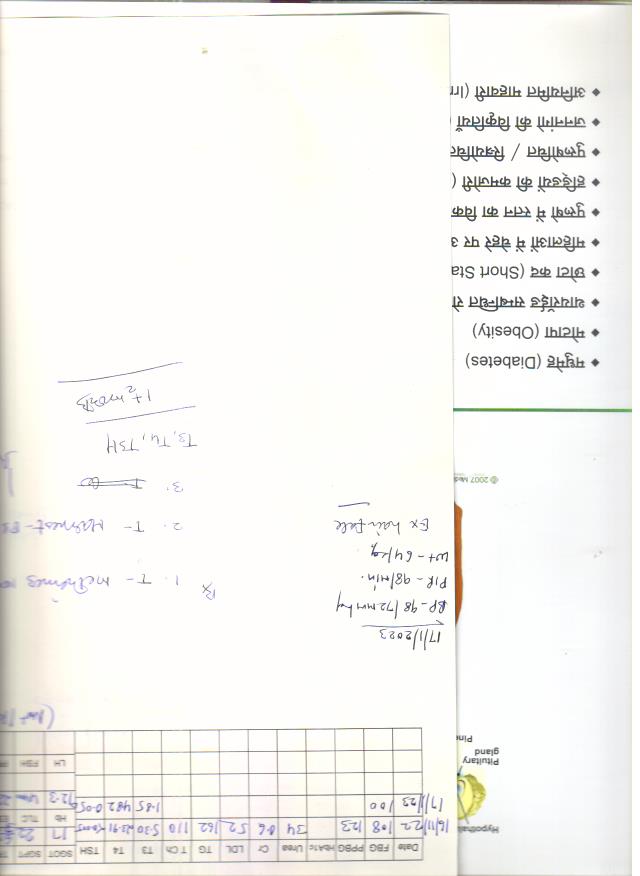 Date FBG PPBG HbA1c Urea Cr LDL TG T Ch T3 T4 TSH SGOT SGPT
16/11/22 108 123 34 0.6 52 162 110 5.30 17
Hb TLC
17/1/23 100 1.85 482 12.3
LH FSH
17/1/2023
BP - 98/72 mmHg
P/R - 98/min.
Wt - 64 kg
Ex hair fall
Rx
1. T-
2. T-
3.
T3, T4, TSH
1+2 months
Hypothal
Pituitary
gland
Pine
© 2007 Med
मधुमेह (Diabetes)
मोटापा (Obesity)
थायरॉईड सम्बन्धित रो
छोटा कद (Short Sta
महिलाओं में चेहरे पर
पुरूषो में स्तन का विक
हड्डियों की कमजोरी (
पुरूषोचित / स्त्रियोचित
जननांगो की विकृतियाँ
अनियमित माहवारी (Ir